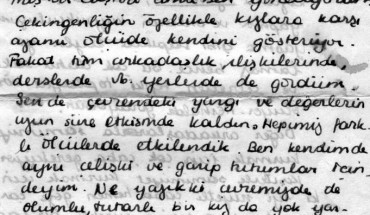 Çekingenliğin özellikle kızlara karşı
azami ölçüde kendini gösteriyor.
Fakat tüm arkadaşlık ilişkilerinde,
derslerde vb. yerlerde de gördüm.
Sen de, çevrendeki yargı ve değerlerin
uzun süre etkisinde kaldın. Hepimiz fark-
lı ölçülerde etkilendik. Ben kendimde
aynı çelişki ve garip tutumlar için-
deyim. Ne yazık ki çevremizde de
olumlu, tutarlı bir kız da yok yar-